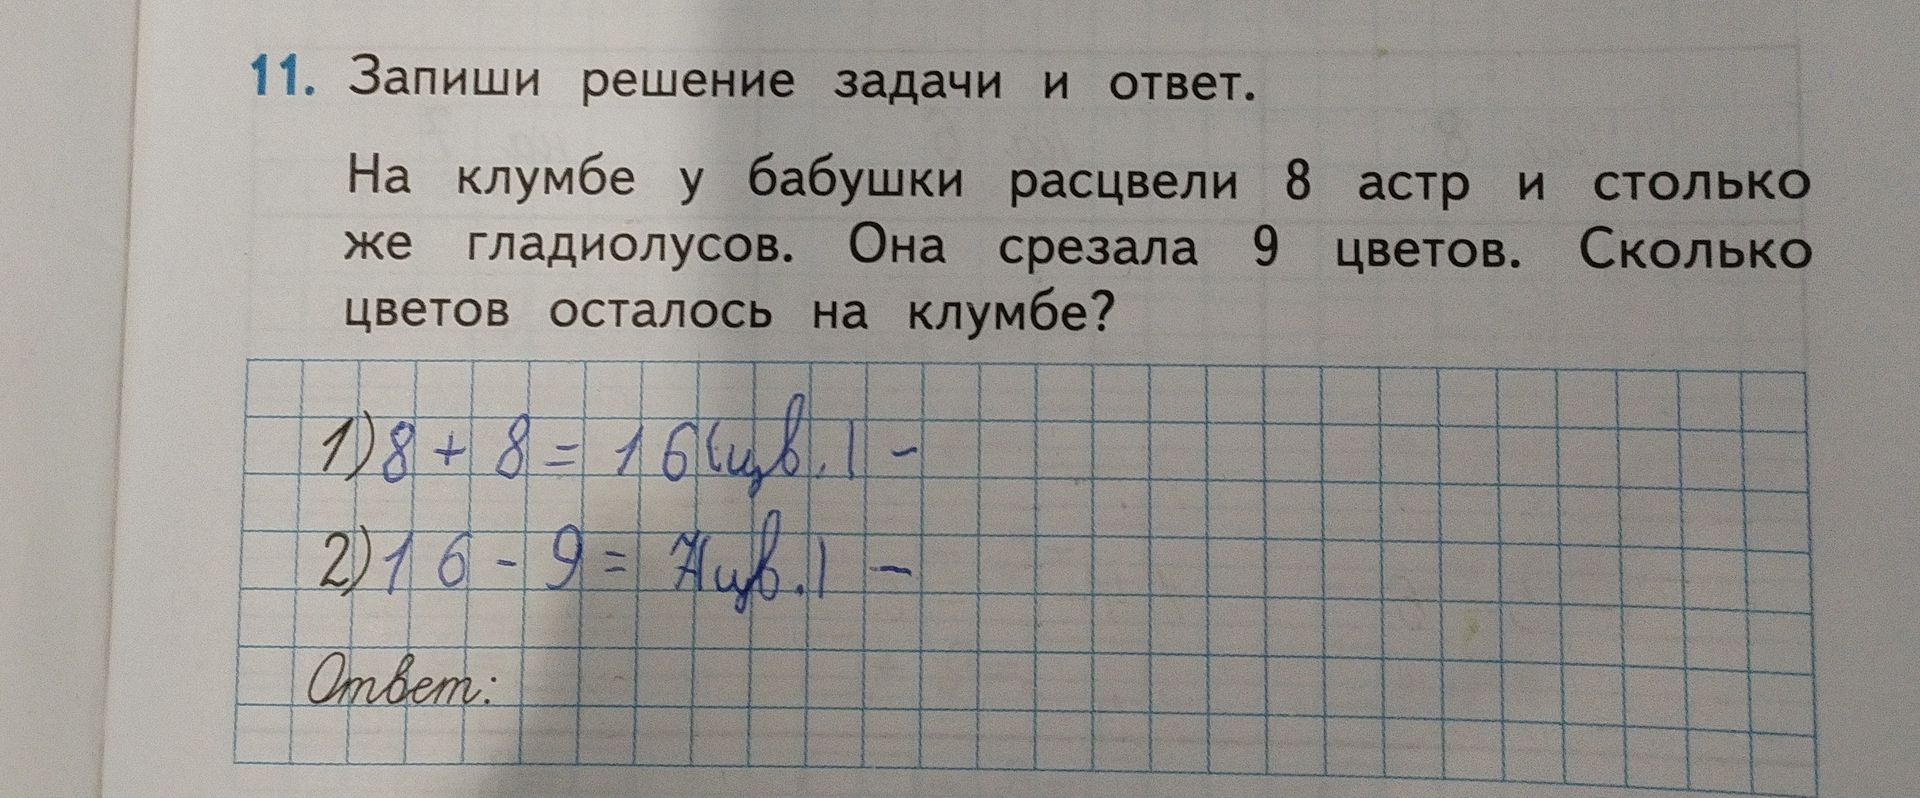 11. Запиши решение задачи и ответ.
На клумбе у бабушки расцвели 8 астр и столько
же гладиолусов. Она срезала 9 цветов. Сколько
цветов осталось на клумбе?
1) 8 + 8 = 16 (цв.) -
2) 16 - 9 = 7 (цв.) -
Ответ: